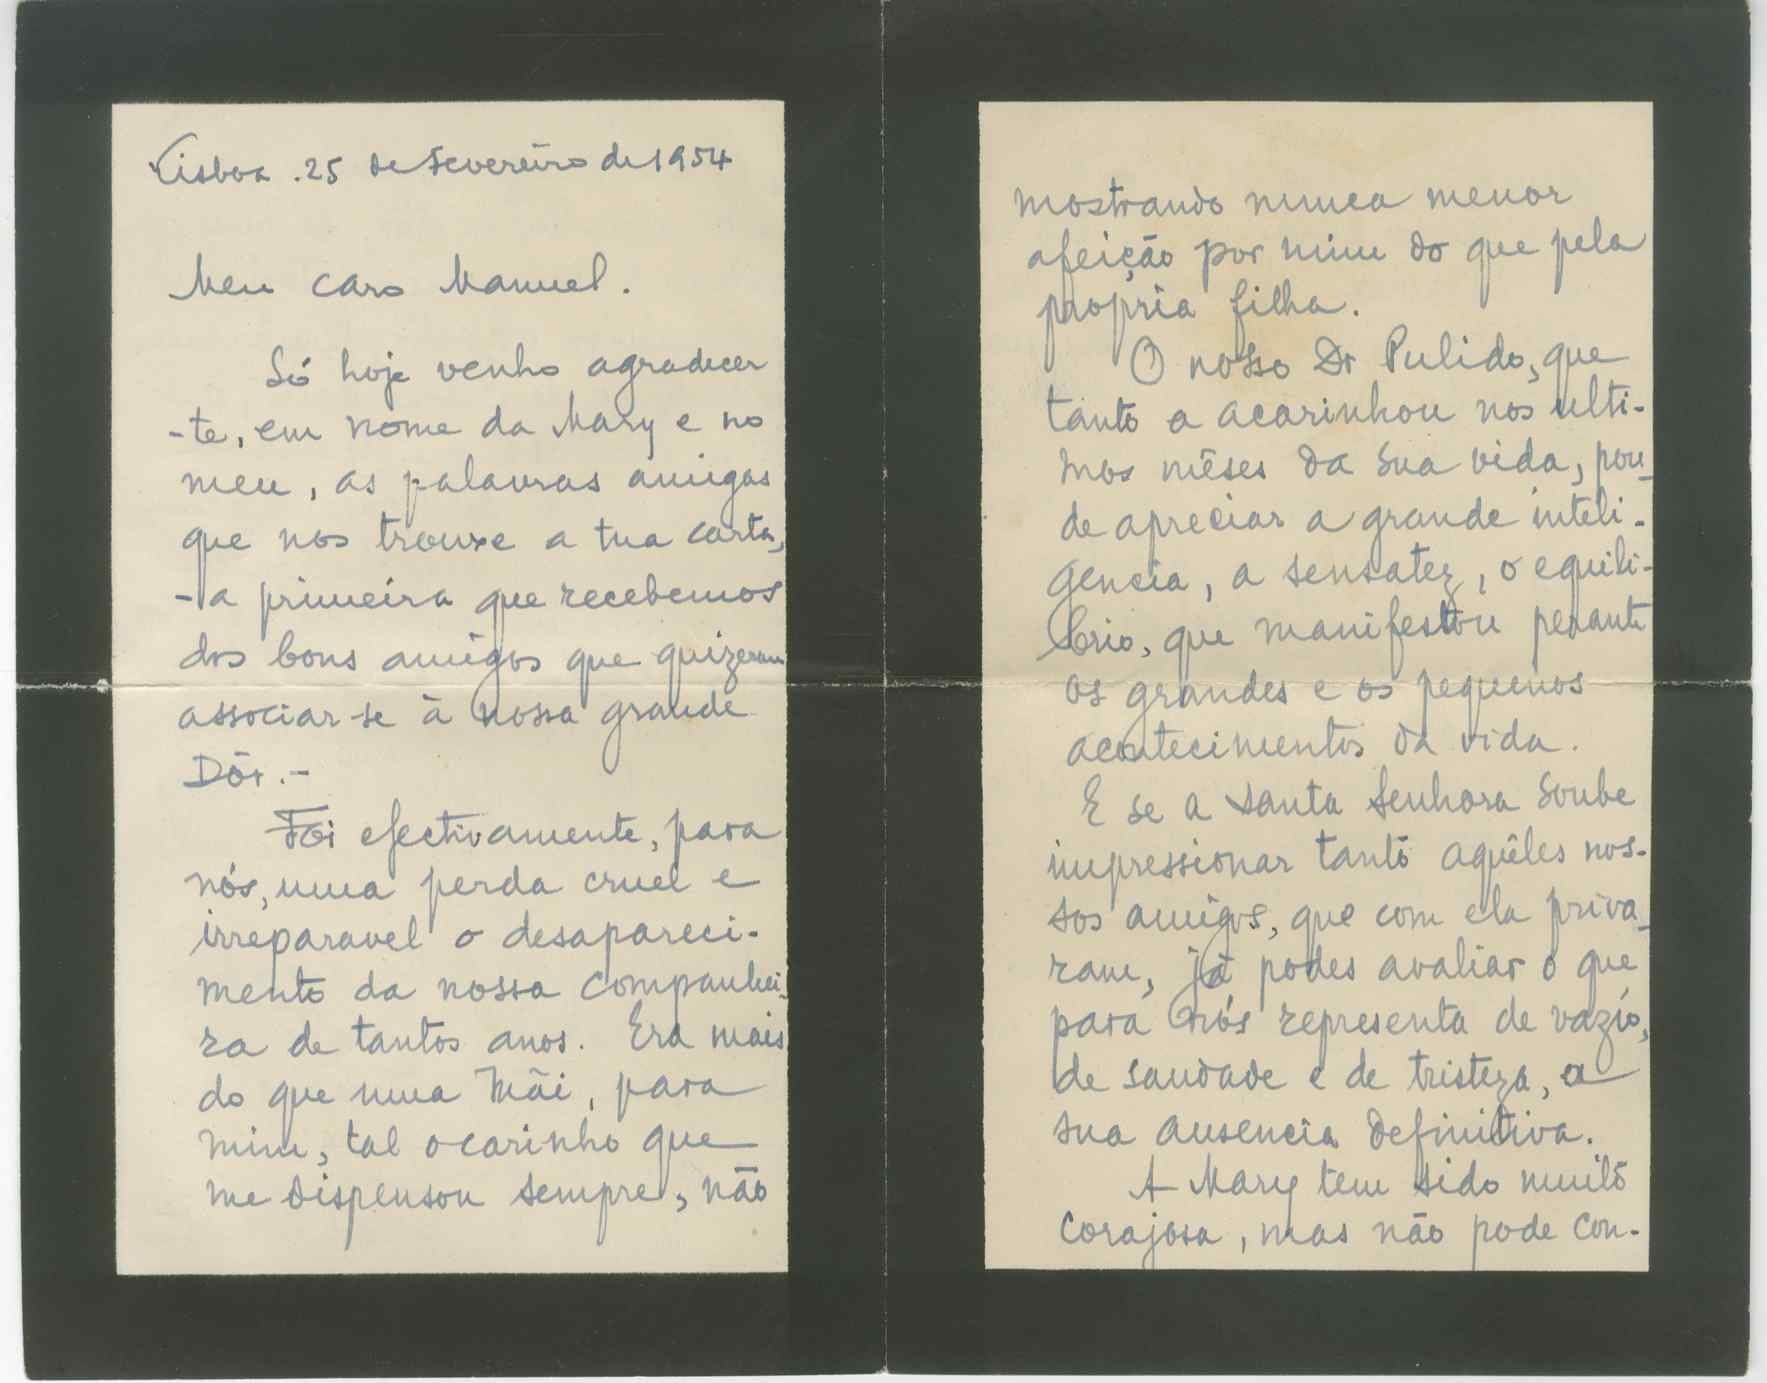 Lisboa. 25 de Fevereiro de 1954
Meu caro Manuel.
Só hoje venho agradecer
-te, em nome da Mary e no
meu, as palavras amigas
que nos trouxe a tua carta,
- a primeira que recebemos
dos bons amigos que quizeram
associar-se à nossa grande
Dôr.-
Foi efectivamente, para
nós, uma perda cruel e
irreparavel o desapareci-
mento da nossa companhei-
ra de tantos anos. Era mais
do que uma Mãi, para
mim, tal o carinho que
me dispensou sempre, não
mostrando nunca menor
afeição por mim do que pela
propria filha.
O nosso Dr Pulido, que
tanto a acarinhou nos ulti-
mos mêses da sua vida, pou-
de apreciar a grande inteli-
gencia, a sensatez, o equili-
brio, que manifestou perante
os grandes e os pequenos
acontecimentos da vida.
E se a Santa Senhora soube
impressionar tanto aquêles nos-
sos amigos, que com ela priva-
ram, já podes avaliar o que
para nós representa de vazio,
de saudade e de tristeza, a
sua ausencia definitiva.
A Mary tem sido muito
corajosa, mas não pode con-